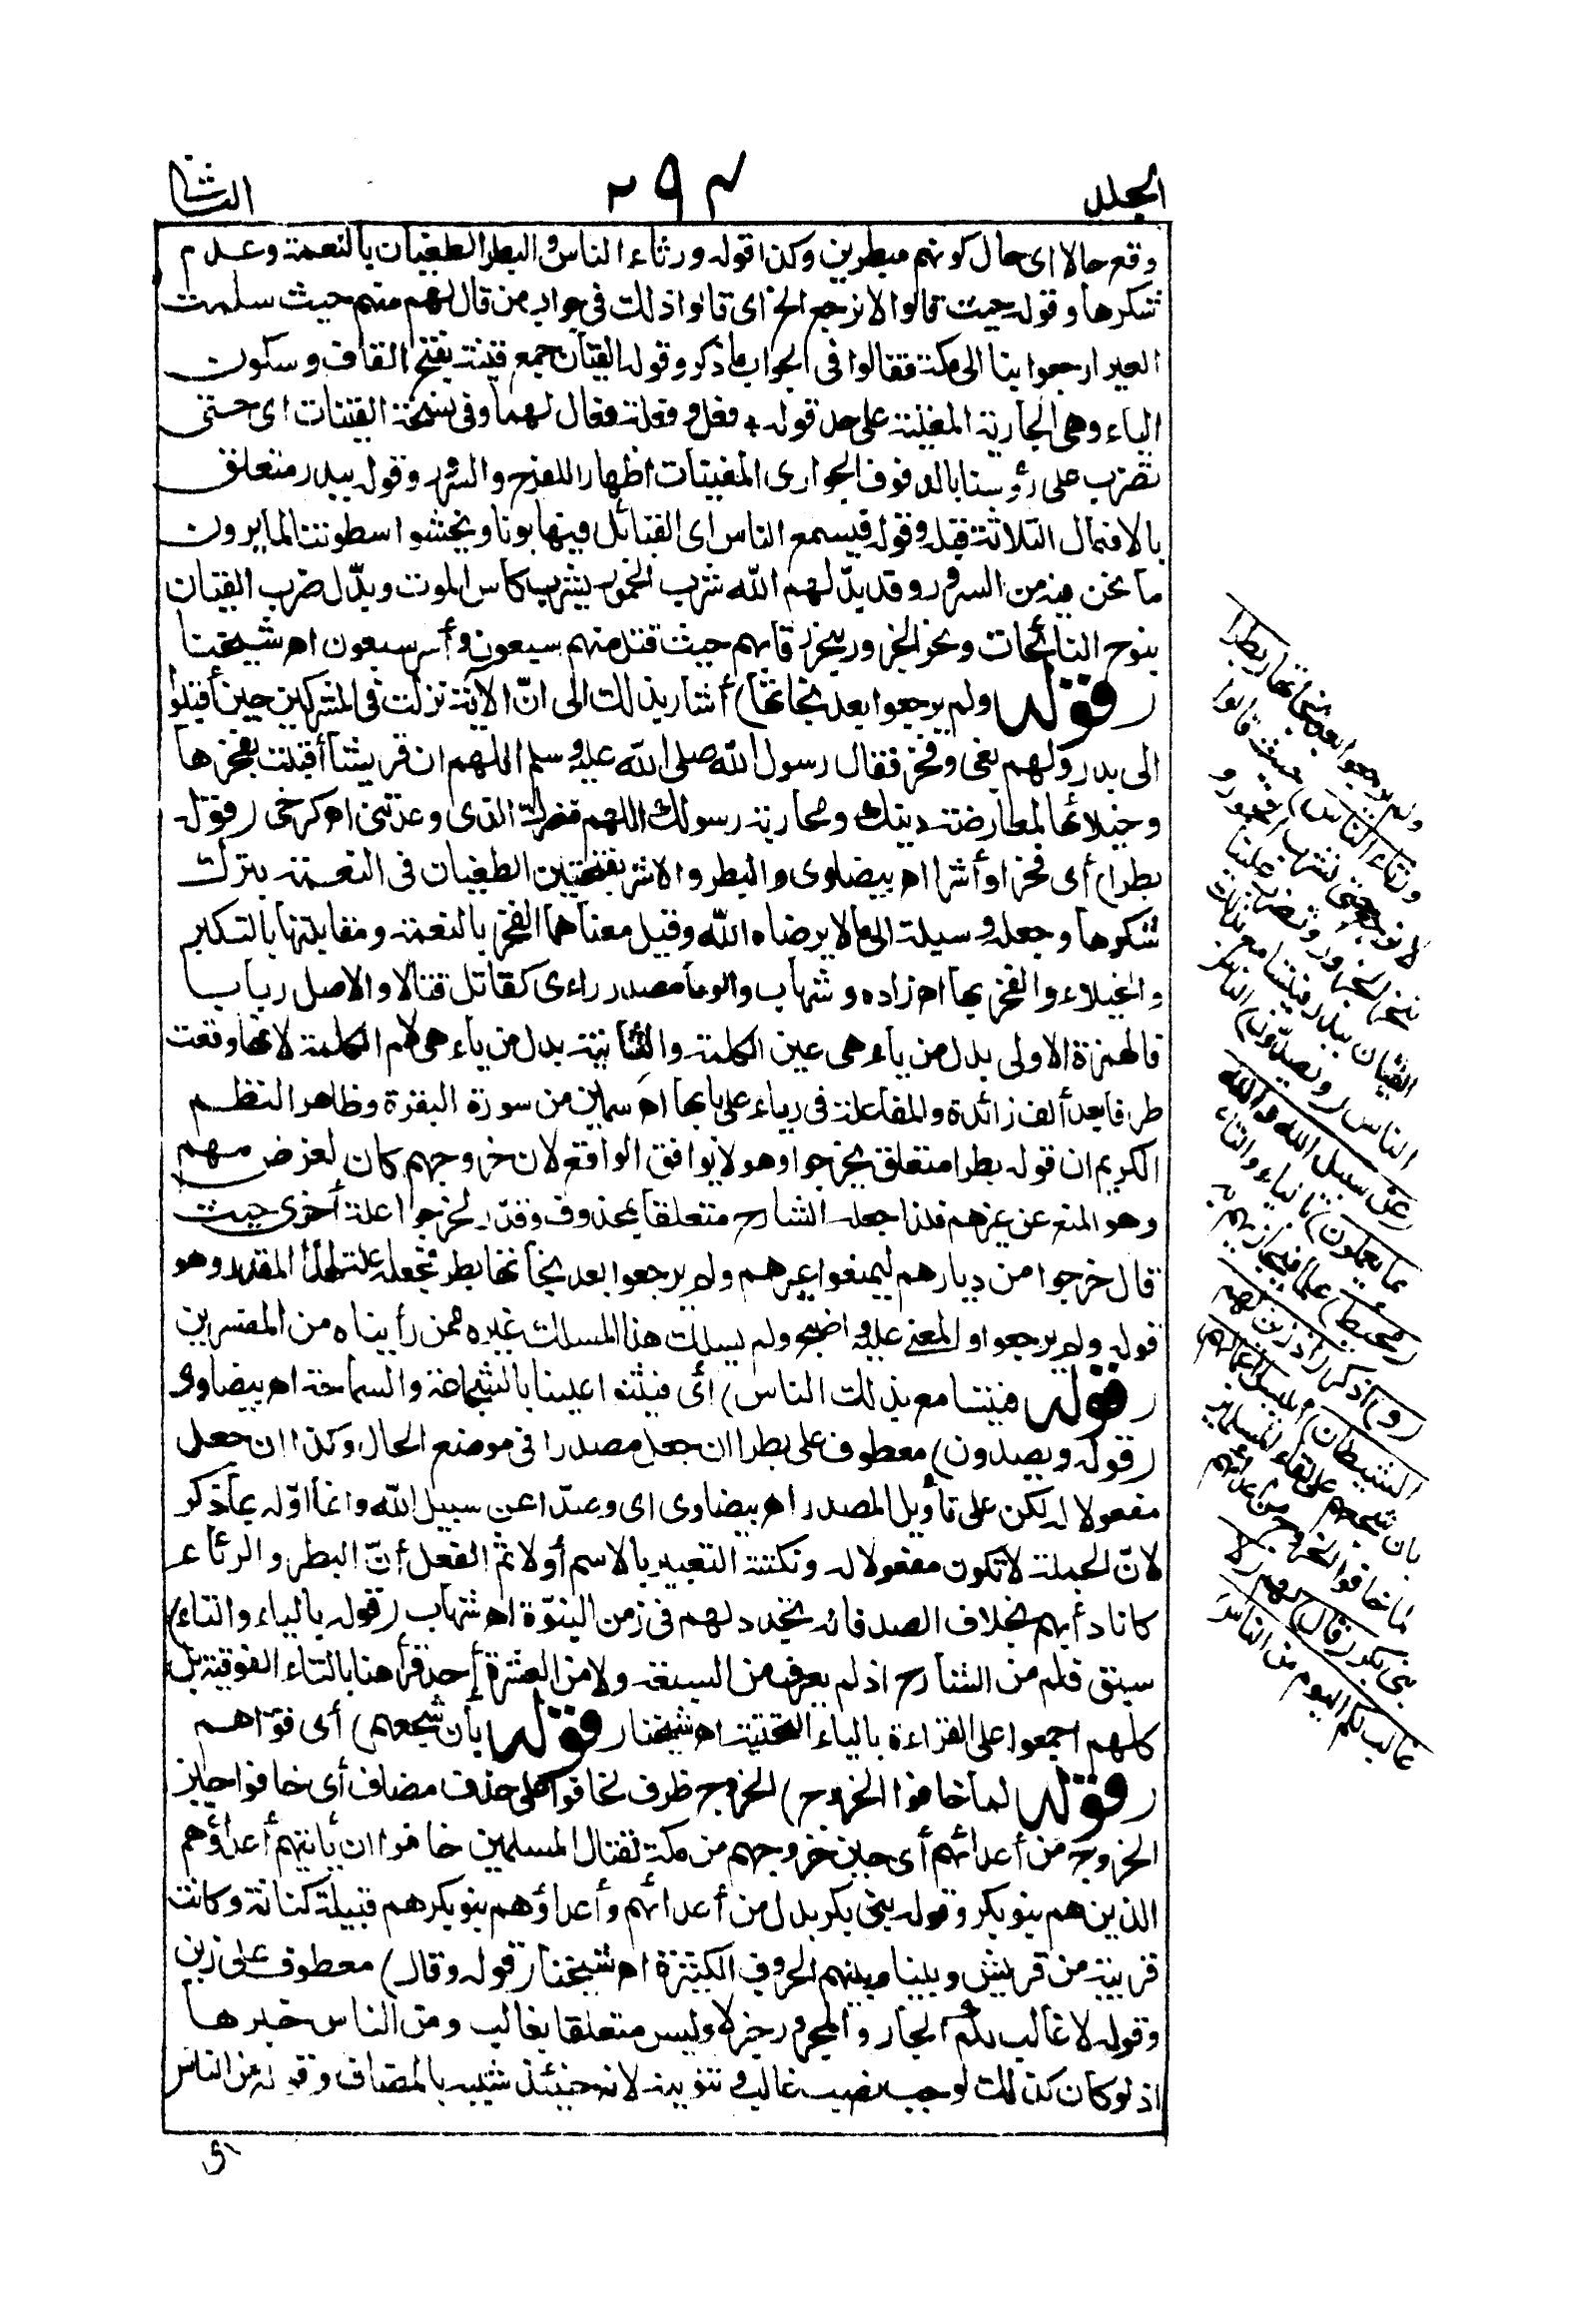 الجلد
٢٩٣
الثاني
وقع حالا اى حال كونهم مبطرين وكذا قوله ورئاء الناس والبطر الطغيان بالنعمة وعدم
شكرها وقوله حيث قالوا لا نرجع الخ اى قالوا ذلك فى جواب من قال لهم منهم حيث سلمت
العير ارجعوا بنا الى مكة فقالوا فى الجواب ما ذكر وقوله القيان جمع قينة بفتح القاف وسكون
الياء وهى الجارية المغنية على حد قوله * فعل وفعلة فعال لهما وفى نسخة القينات اى حتى
تضرب على رؤسنا بالدفوف الجوارى المغنيات اظهارا للفرح والسرور وقوله ببدر متعلق
بالافعال الثلاثة قبله وقوله فيسمع الناس اى القبائل فيهابونا ويخشوا سطوتنا لما يرون
ما نحن فيه من السرور وقد بدّل لهم الله شرب الخمور بشرب كاس الموت وبدّل ضرب القيان
بنوح النائحات ونحر الجزور بنحر رقابهم حيث قتل منهم سبعون وأسر سبعون اه شيخنا
(قوله ولم يرجعوا بعد نجاتها) أشار بذلك الى انّ الآية نزلت فى المشركين حين أقبلوا
الى بدر ولهم بغى وفخر فقال رسول الله صلى الله عليه وسلم اللهم ان قريشا أقبلت بفخرها
وخيلائها لمعارضة دينك ومحاربة رسولك اللهم فنصرك الذى وعدتنى اه كرخى (قوله
بطرا) أى فخرا وأشرا اه بيضاوى والبطر والاشر بفتحتين الطغيان فى النعمة بترك
شكرها وجعله وسيلة الى ما لا يرضاه الله وقيل معناهما الفخر بالنعمة ومقابلتها بالتكبر
والخيلاء والفخر بها اه زاده وشهاب والرياء مصدر راءى كقاتل قتالا والاصل ريايا
فالهمزة الاولى بدل من ياء هى عين الكلمة والثانية بدل من ياء هى لام الكلمة لانها وقعت
طرفا بعد ألف زائدة والمفاعلة فى رياء على بابها اه سمين من سورة البقرة وظاهر النظم
الكريم ان قوله بطرا متعلق بخرجوا وهو لا يوافق الواقع لان خروجهم كان لغرض مهم
وهو المنع عن عيرهم فلذا جعله الشارح متعلقا بمحذوف وقدّر لخرجوا علة أخرى حيث
قال خرجوا من ديارهم ليمنعوا عيرهم ولم يرجعوا بعد نجاتها بطرا فجعله علة لهذا المقدر وهو
قوله ولم يرجعوا والمعنى عليه واضح ولم يسلك هذا المسلك غيره ممن رأيناه من المفسرين
(قوله فيتسامع بذلك الناس) أى فيثنوا علينا بالشجاعة والسماحة اه بيضاوى
(قوله ويصدون) معطوف على بطرا ان جعل مصدرا فى موضع الحال وكذا ان جعل
مفعولا له لكن على تأويل المصدر اه بيضاوى اى وصدّا عن سبيل الله وانما اوّله بما ذكر
لانّ الجملة لا تكون مفعولا له ونكتة التعبير بالاسم أولا ثم الفعل أنّ البطر والرئاء
كانا دأبهم بخلاف الصد فانه تجدد لهم فى زمن النبوّة اه شهاب (قوله بالياء والتاء)
سبق قلم من الشارح اذ لم يعرف من السبعة ولا من العشرة أحد قرأ هنا بالتاء الفوقية بل
كلهم اجمعوا على القراءة بالياء التحتية اه شيخنا (قوله بأن شجعهم) أى قوّاهم
(قوله لما خافوا الخروج) الخروج ظرف لخافوا على حذف مضاف أى خافوا حين
الخروج من أعدائهم أى حين خروجهم من مكة لقتال المسلمين خافوا ان يأتيهم أعداؤهم
الذين هم بنو بكر وقوله بنى بكر بدل من أعدائهم وأعداؤهم بنو بكر هم قبيلة كنانة وكانت
قريبة من قريش وبينها وبينهم الحروب الكثيرة اه شيخنا (قوله وقال) معطوف على زين
وقوله لا غالب لكم الجار والمجرور خبر لا وليس متعلقا بغالب ومن الناس خبرها
اذ لو كان كذلك لوجب نصب غالب وتنوينه لانه حينئذ شبيه بالمضاف وقوله من الناس
ولم يرجعوا بعد نجاتها (بطرا
ورئاء الناس) حيث قالوا
لا نرجع حتى نشرب الخمور و
ننحر الجزور وتضرب علينا
القيان ببدر فيتسامع بذلك
الناس (ويصدّون) الناس
(عن سبيل الله والله
بما يعملون) بالياء والتاء
(محيط) علما فيجازيهم به
(و) اذكر (اذ زين لهم
الشيطان) ابليس (اعمالهم)
بان شجعهم على لقاء المسلمين
لما خافوا الخروج من اعدائهم
بنى بكر (وقال) لهم (لا
غالب لكم اليوم من الناس